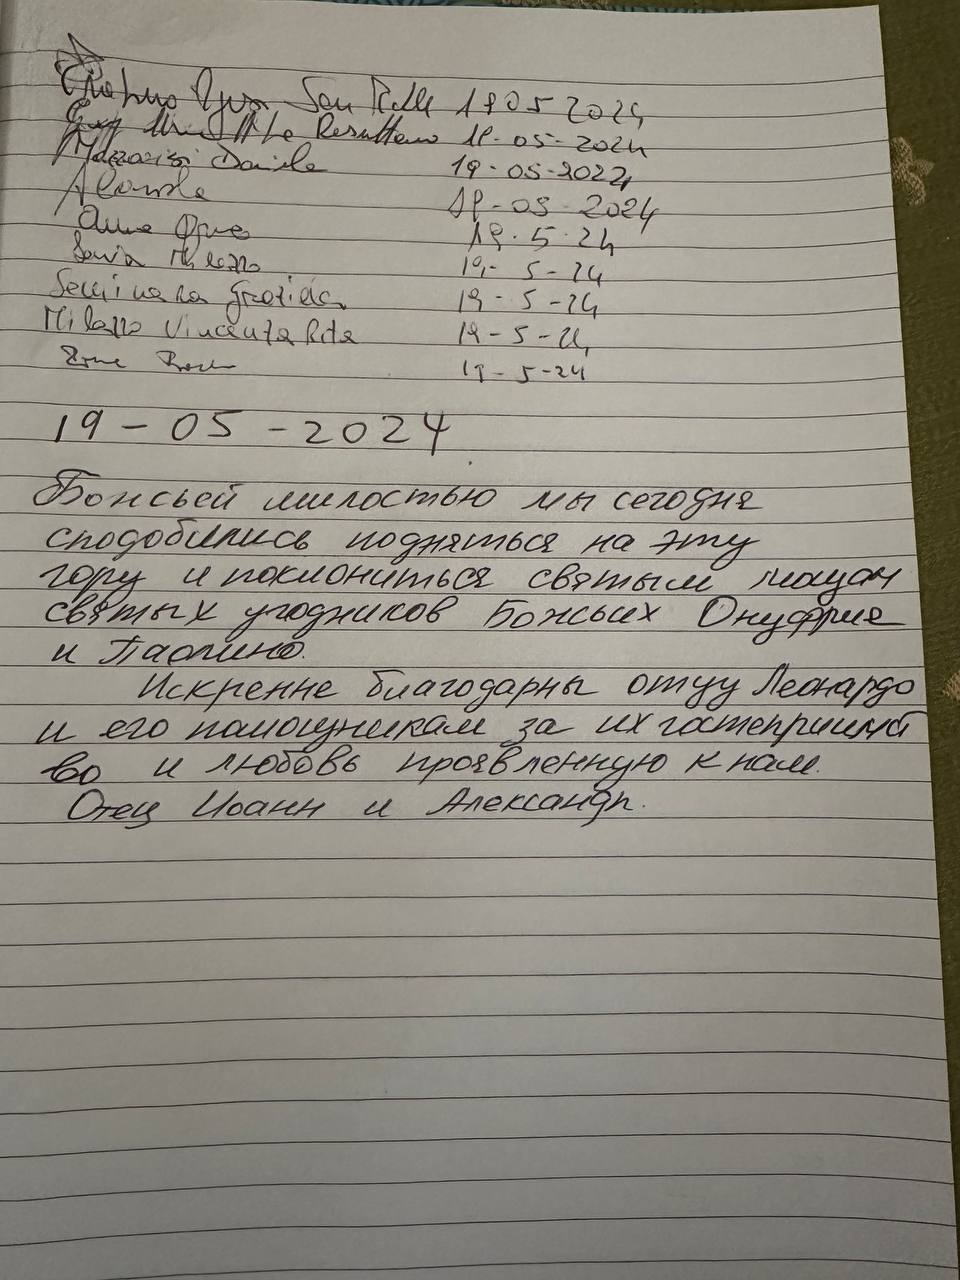 19 05 2024
Resuttano 19-05-2024
Daniele 19-05-2024
19-05-2024
19.5.24
Sonia Milazzo 19-5-24
Seminara Graziella 19-5-24
Milazzo Vincenza Rita 19-5-24
19-5-24
19-05-2024
Божсьей милостью мы сегодня
сподобились подняться на эту
гору и поклониться святым мощам
святых угодников Божсьих Онуфрие
и Паолино.
Искренне благодарны отцу Леонардо
и его помощникам за их гостеприимст
во и любовь проявленную к нам.
Отец Иоанн и Александр.